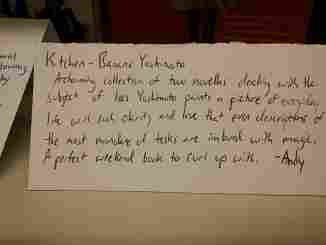 Kitchen - Banana Yoshimoto
A charming collection of two novellas dealing with the
subject of loss Yoshimoto paints a picture of everyday
life with such clarity and love that even descriptions of
the most mundane of tasks are imbued with magic.
A perfect weekend book to curl up with. - Andy